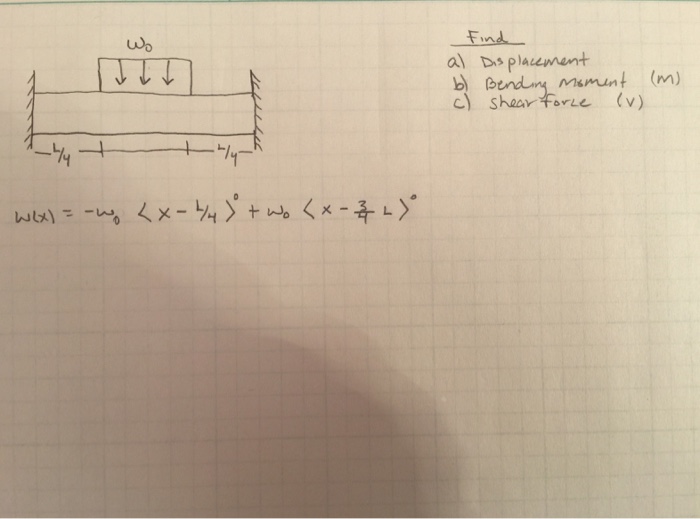 w₀
Find
a) Displacement
b) Bending Moment (m)
c) Shear force (v)
L/4 L/4
w(x) = -w₀ <x - L/4>⁰ + w₀ <x - 3/4 L>⁰